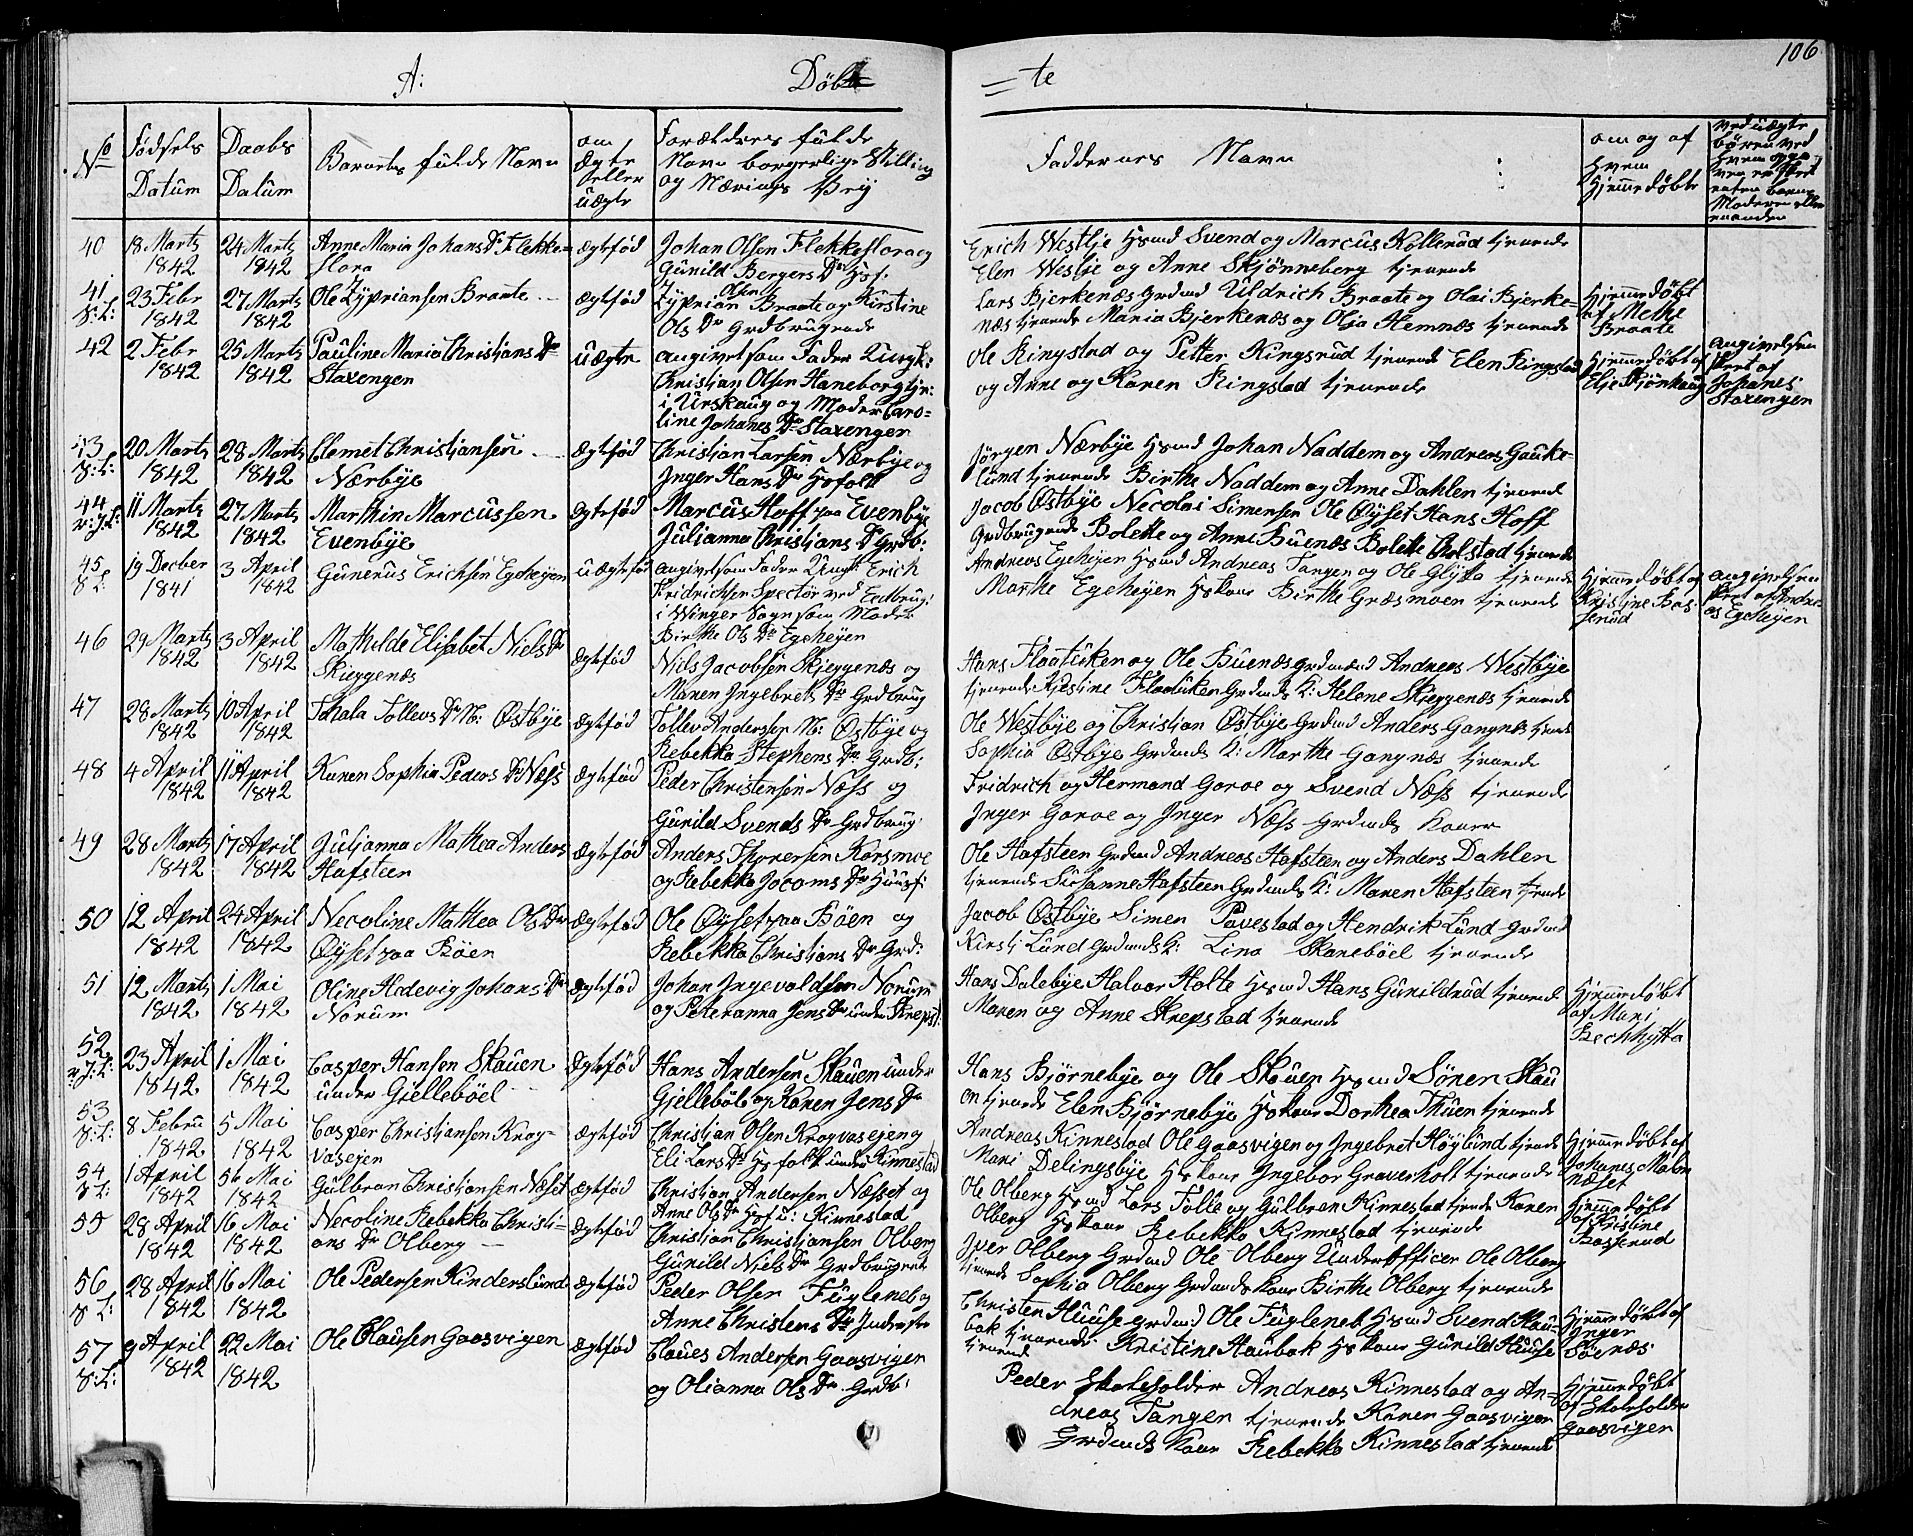 106
A: Døb=
=te
No
Fødsels Datum
Daabs Datum
Barnets fulde Navn
om ægte eller uægte
Forældrenes fulde Navn borgerlige Stilling og Nærings Vej
Faddernes Navn
om og af hvem hjemmedøbt
40 18 Marts 1842 24 Marts 1842 Anne Maria Johans Dr Flekkeflora ægtefød
Johan Olsen Flekkeflora og
Gunild Bergers Dr Hsf:
Erich Westbje Hsmd Svend og Marcus Kollerud tjenende
Elen Westbje og Anne Skjønneberg tjenende
41 23 Febr 1842 27 Marts 1842 Ole Zypriansen Braate ægtefød
Zyprian Olsen Braate og Kirstine
Ols Dr Grdbrugende
Lars Bjerkenæs Grdmd Uldrich Braate og Olai Bjerke=
næs tjenende Maria Bjerkenæs og Olja Hemnæs tjenende
Hjemmedøbt
af Methe
Braate
42 2 Febr 1842 25 Marts 1842 Pauline Maria Christians Dr Staxengen uægte
angivet som Fader Ungk:
Christian Olsen Haneborg tje:
i Urskoug og Moder Caro-
line Johanes Dr Staxengen
Ole Ringstad og Petter Kingsrud tjenende Elen Ringstad
og Anne og Karen Ringstad tjenende
Hjemmedøbt af
Elje Skjønhaug
angivelsen
skeet af
Johanes
Staxengen
43 20 Marts 1842 28 Marts 1842 Clemet Christjansen Nærbye ægtefød
Christjan Larsen Nærbye og
Inger Hans Dr Hsfolk
Jørgen Nærbye Hsmd Johan Naddem og Andreas Gauke-
lund tjenende Birthe Naddem og Anne Dahlen tjenend
44 11 Marts 1842 27 Marts 1842 Marthin Marcussen Evenbye ægtefød
Marcus Hoff paa Evenbye
Julianna Christians Dr Grdb:
Jacob Østbye Necolai Simensen Ole Øyset Hans Hoff
Grdbrugende Bolette og Anne Buenæs Bolette Tholstad tjenende
45 19 Decber 1841 3 April 1842 Gunerus Erichsen Egeheyen uægtefød
angivet som Fader Ungk Erich
Fridrichsen Spectør ved Eedbrug:
i Winger Sogn som Moder
Birthe Ols Dr Egeheyen
Andreas Egeheyen Hsmd Andreas Tangen og Ole Glytta tjenende
Marthe Egeheyen Hskone Birthe Græsmoen tjenende
Hjemmedøbt af
Kristine Bas-
serud
angivelsen
skeet af Andre-
as Egeheyen
46 29 Marts 1842 3 April 1842 Mathilde Elisabet Niels Dr Skieggenæs ægtefød
Niels Jacobsen Skjeggenæs og
Maren Ingebrets Dr Grdbrug
Hans Flaatuken og Ole Buenæs Grdmænd Andreas Westbye
tjenende Kjestine Flaatuken Grdmds K: Helene Skjeggenæs tjenende
47 28 Marts 1842 10 April 1842 Tollevs Dr M: Østbye ægtefød
Tollev Andersen M: Østbye og
Rebekka Stephens Dr Grdb:
Ole Westbye og Christian Østbye Grdmd Anders Gangnæs tjenende
Sophia Østbye Grdmds K: Marthe Gangnæs tjenende
48 4 April 1842 11 April 1842 Karen Sophia Peders Dr Næss ægtefød
Peder Christensen Næss og
Gunild Svends Dr Grdbrug:
Fridrich og Hermand Goroe og Svend Næss tjenende
Inger Goroe og Inger Næss Grdmds Koner
49 28 Marts 1842 17 April 1842 Juljanna Mathea Anders Hafsteen ægtefød
Anders Thoresen Korsmoe
og Rebekka Jocoms Dr Huusf:
Ole Hafsteen Grdmd Andreas Hafsteen og Anders Dahlen
tjenende Susanne Hafsteen Grdmds K: Maren Hafsteen tjende
50 12 April 1842 24 April 1842 Necoline Mathea Ols Dr Øyset paa Bøen ægtefød
Ole Øyset paa Bøen og
Rebekka Christians Dr Grd:
Jacob Østbye Simen Pavestad og Hendrik Lund Grdmd
Kirsti Lund Grdmds K: Lina Skanebøel tjenende
51 12 Marts 1842 1 Mai 1842 Oline Hedevig Johans Dr Norum ægtefød
Johan Ingevoldsen Norum
og Peteranna Jens Dr under Krepst:
Hans Dalebye Halvor Holte Hsmd Hans Gunildrud tjenende
Maren og Anne Skrepstad tjenende
Hjemmedøbt
af Mari
Bechhytta
52 23 April 1842 1 Mai 1842 Casper Hansen Skauen under Gjellebøel ægtefød
Hans Andersen Skauen under
Gjellebøl og Karen Jens Dr
Hans Bjørnebye og Ole Skauen Hsmd Søren Skau
en tjenende Elen Bjørnebye Hskone Dorthea Thuen tjenende
53 8 Febru 1842 5 Mai 1842 Casper Christjansen Krogvasejen ægtefød
Christjan Olsen Krogvasejen og
Eli Lars Dr Hsfolk under Kinnestad
Andreas Kinnestad Ole Gaasvigen og Ingebret Høylund tjende
Mari Delingsbye Hskone Ingebor Graverholt tjenende
Hjemmedøbt af
Johanes Malm
næset
54 1 April 1842 56 Mai 1842 Gulbran Christjansen Næset ægtefød
Christian Andersen Næsset og
Anne Ols Dr Hsf u: Kinnestad
Ole Olberg Hsmd Lars Tolle og Gulbran Kinnestad tjende Karen
Olberg Hskone Rebekka Kinnestad tjenende
Hjemmedøbt
af Kristine
Basserud
55 28 April 1842 16 Mai 1842 Necoline Rebekka Christi-
ans Dr Olberg ægtefød
Christian Christjansen Olberg
Gunild Niels Dr Grdbrugende
Iver Olberg Grdmd Ole Olberg Underofficer Ole Olberg
tjenende Sophia Olberg Grdmds Kone Birthe Olberg tjenende
56 28 April 1842 16 Mai 1842 Ole Pedersen Kinderslund ægtefød
Peder Olsen Fugleneb og
Anne Christens Dr Inderste
Christen Huuse Grdmd Ole Fugleneb Hsmd Svend Hau-
bak tjenende Kristine Haubak Hskone Gunild Huuse
tjenend
Hjemmedøbt af
Inger
Søenæs
57 9 April 1842 22 Mai 1842 Ole Clausen Gaasvigen ægtefød
Claues Andersen Gaasvigen
og Olianna Ols Dr Grdb:
Peder Skoleholder Andreas Kinnestad og An-
dreas Tangen tjenende Karen Gaasvigen
Grdmds Kone Rebekka Kinnestad tjenende
Hjemmedøbt
af Skoleholder
Gaasvigen